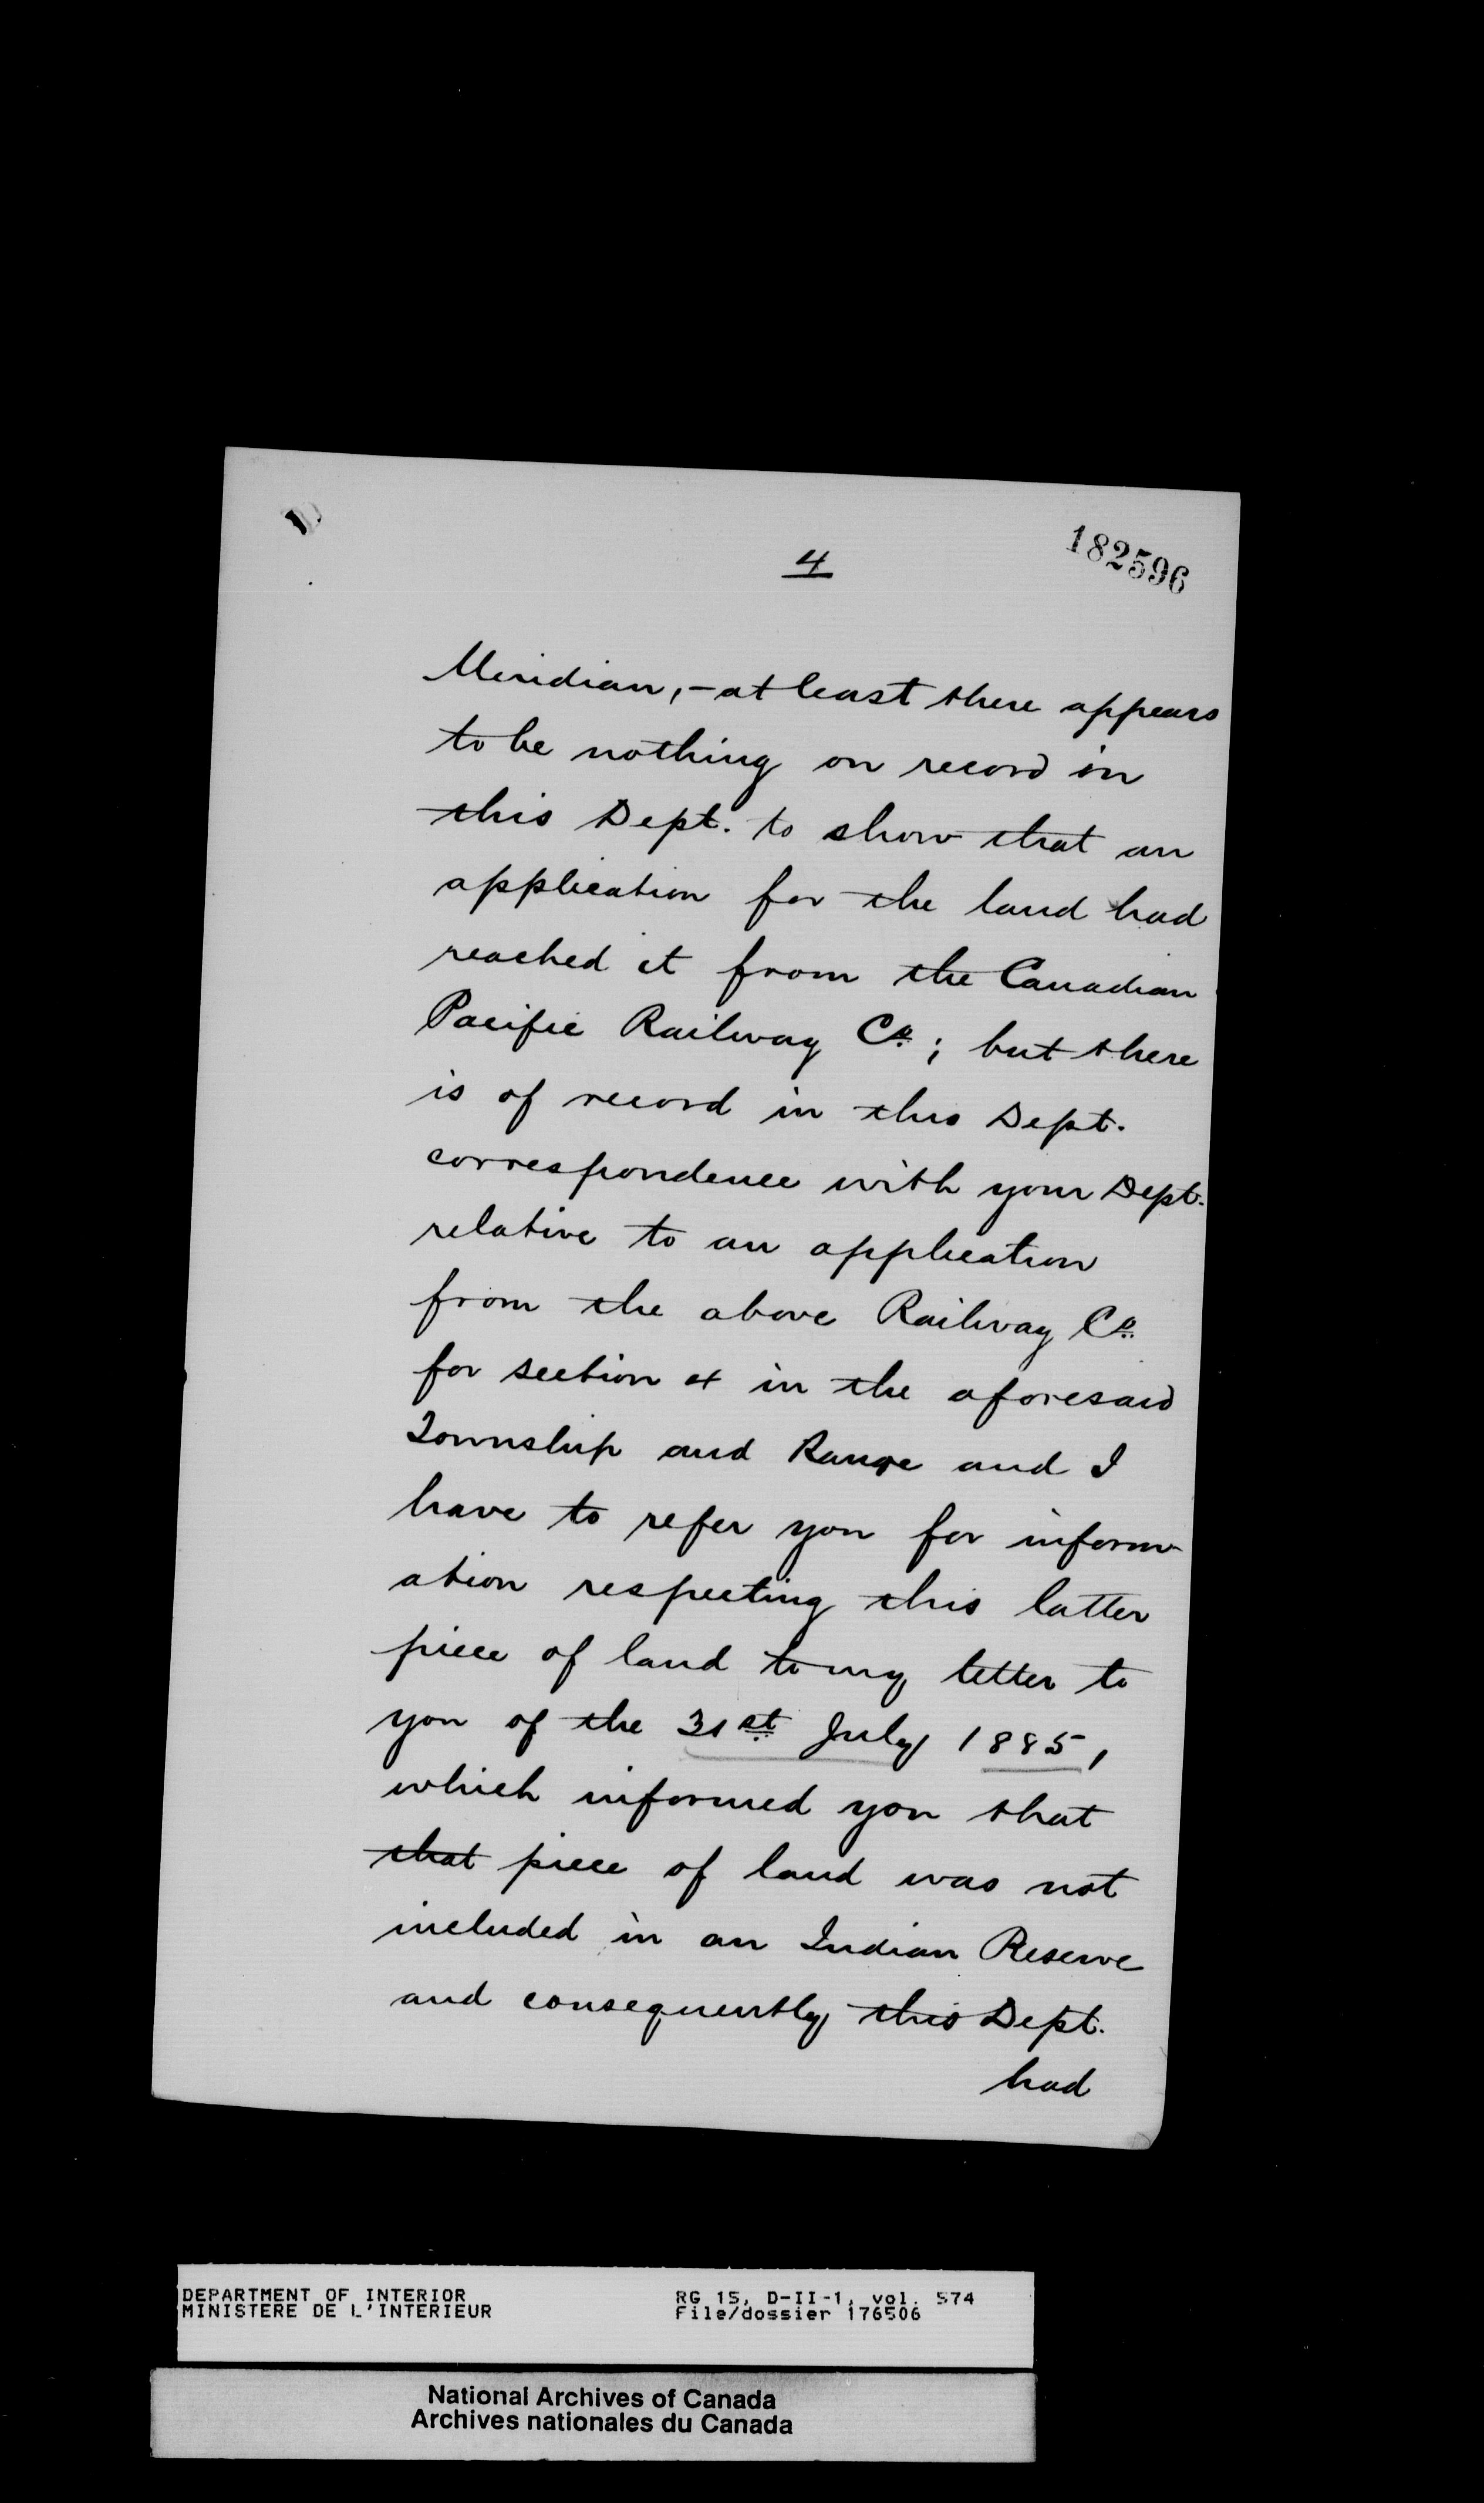 4
182596
Meridian, - at least there appears
to be nothing on record in
this Dept. to show that an
application for the land had
reached it from the Canadian
Pacific Railway Co.; but there
is of record in this Dept.
correspondence with your Dept.
relative to an application
from the above Railway Co.
for section 4 in the aforesaid
Township and Range and I
have to refer you for inform-
ation respecting this latter
piece of land to my letter to
you of the 31st July 1885,
which informed you that
that piece of land was not
included in an Indian Reserve
and consequently this Dept.
had
DEPARTMENT OF INTERIOR RG 15, D-II-1, vol. 574
MINISTERE DE L'INTERIEUR File/dossier 176506
National Archives of Canada
Archives nationales du Canada